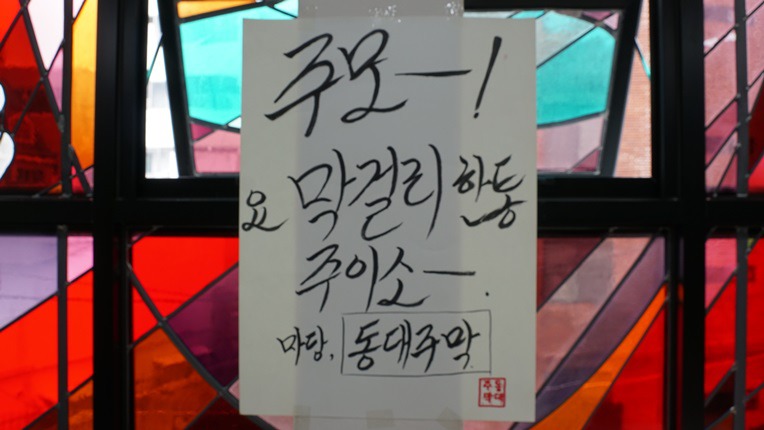 주모ㅡ!
요 막걸리 한통
주이소ㅡ.
마당, 동대주막
주동
막대